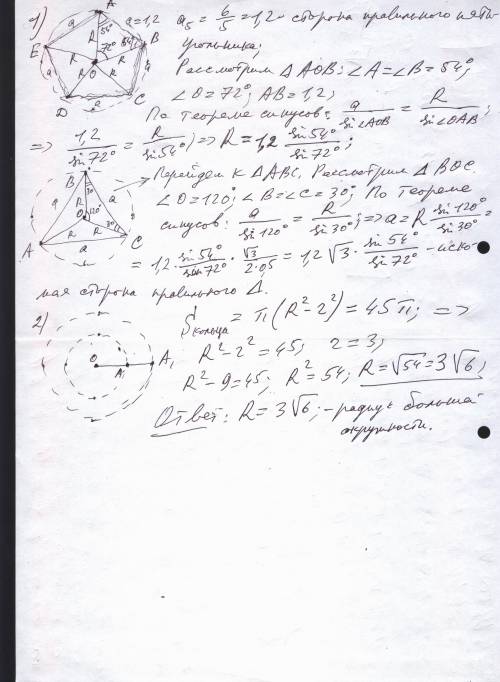 1) A a=1,2 a₅ = 6/5 = 1,2 - сторона правильного пяти-
E a a B R 54° 54° 72° O R R R R a a D a C
угольника;
Рассмотрим ΔAOB: ∠A=∠B=54°
∠O=72°; AB=1,2;
По теореме синусов: a/sin∠AOB = R/sin∠OAB;
=> 1,2/sin72° = R/sin54°; => R=1,2 sin54°/sin72°;
Перейдем к ΔABC. Рассмотрим ΔBOC.
B a a R 30 O 120° R R 30° A a C
∠O=120°; ∠B=∠C=30°; По теореме
синусов: a/sin120° = R/sin30°; => a=R sin120°/sin30° =
= 1,2 · sin54°/sin72° · √3/2·0,5 = 1,2√3 · sin54°/sin72° - иско-
мая сторона правильного Δ.
2) Sкольца = π(R²-r²) = 45π; =>
O A A₁
R²-r²=45; r=3;
R²-9=45; R²=54; R=√54=3√6;
Ответ: R=3√6; - радиус большей
окружности.